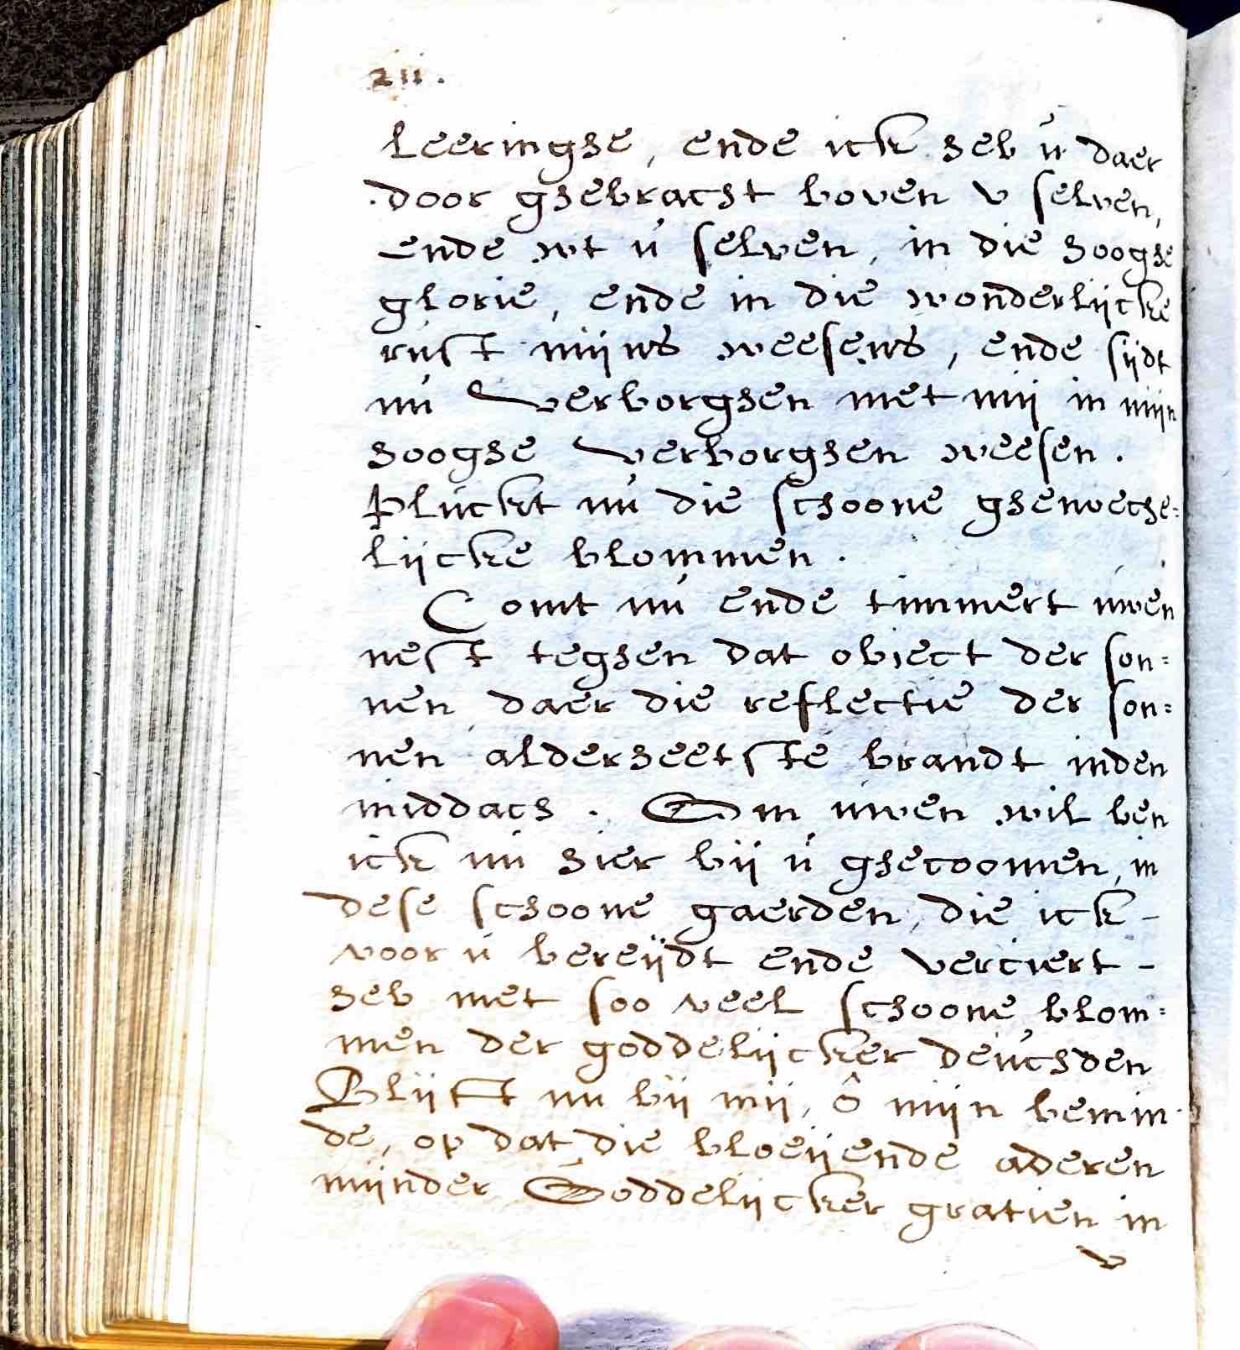 211.
leeringhe, ende ick heb ú daer
door ghebracht boven v selven,
ende wt ú selven, in die hooghe
glorie, ende in die wonderlijcke
rúst mijns weesens, ende sijdt
nú verborghen met mij in mijn
hooghe verborghen weesen.
Plúckt nú die schoone ghenoeche=
lijcke blommen.
Comt nú ende timmert uwen
nest teghen dat obiect der son=
nen daer die reflectie der son=
nen alderheetste brandt inden
middach. Om uwen wil ben
ick nú hier bij ú ghecoomen, in
dese schoone gaerden, die ick -
voor ú bereijdt ende verciert -
heb met soo veel schoone blom=
men der goddelijcker deúchden
Blijft nu bij mij, ô mijn bemin-
de, op dat die bloeijende aderen
mijnder Goddelijcker gratien in
v